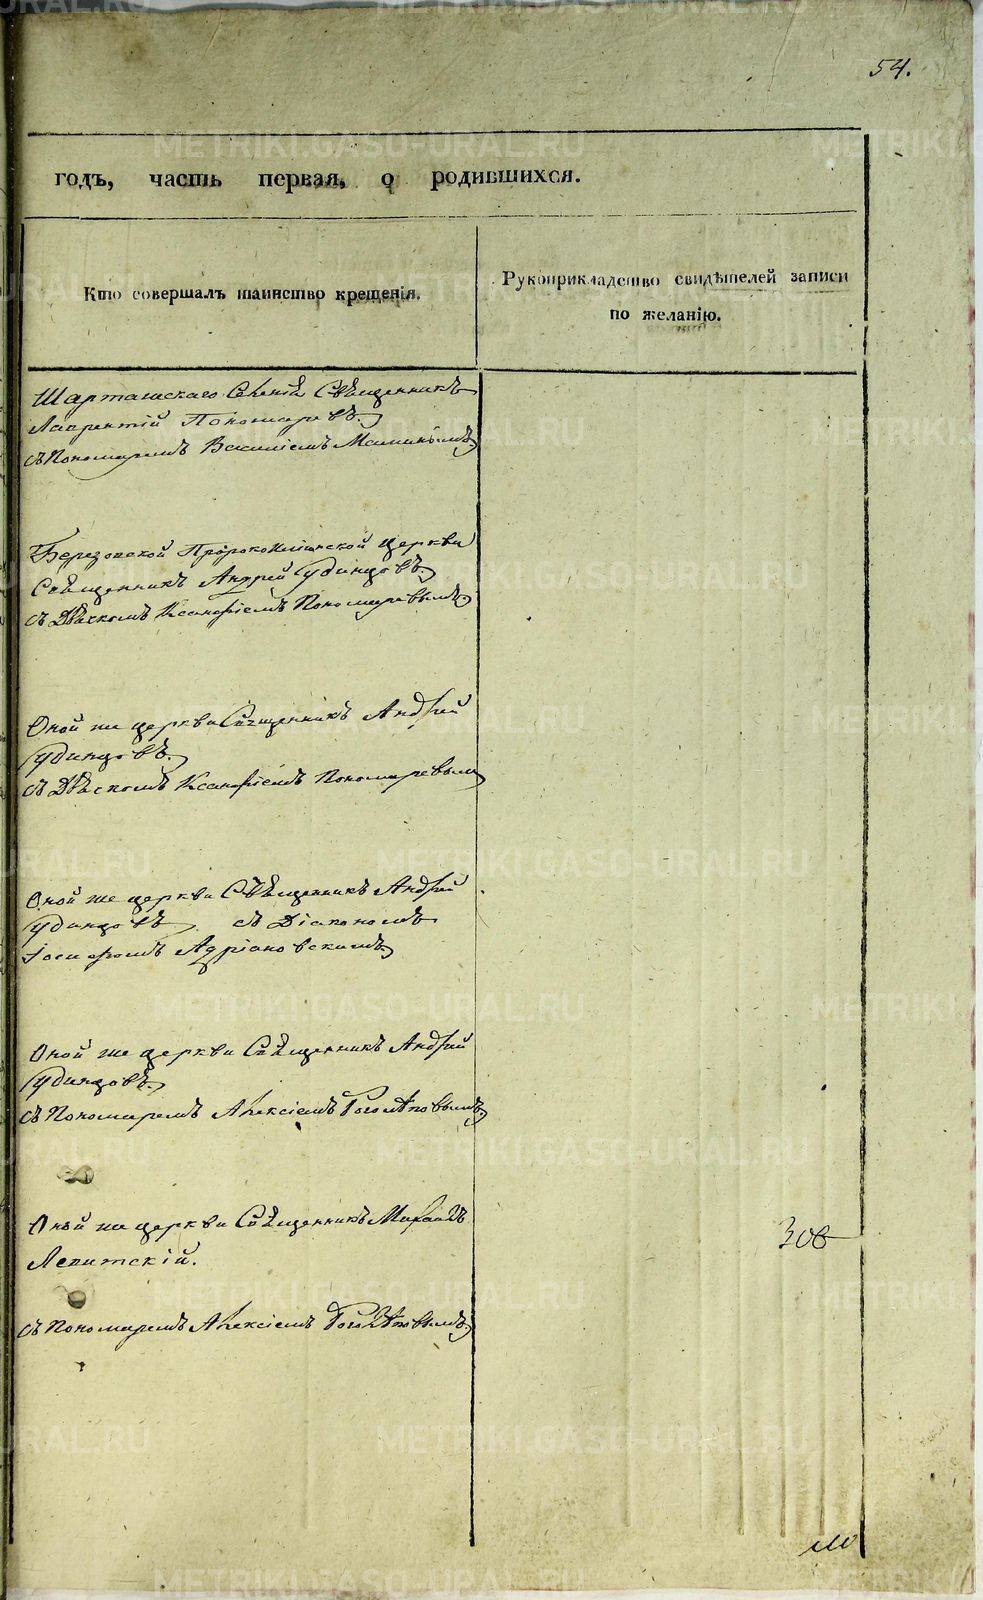 54.
годъ, часть первая, о родившихся.
Кто совершалъ таинство крещенія.
Рукоприкладство свидѣтелей записи
по желанію.
Шарташскаго Селенія Священникъ
Лаврентій Пономаревъ.
съ Пономаремъ Василіемъ Маминымъ.
Березовской Пророкоильинской церкви
Священникъ Андрей Удинцовъ.
съ Дьячкомъ Ксанофіемъ Пономаревымъ.
Оной же церкви Священникъ Андрей
Удинцовъ.
съ Дьячкомъ Ксанофіемъ Пономаревымъ
Оной же церкви Священникъ Андрей
Удинцовъ съ Діакономъ
Іосифомъ Адріановскимъ
Оной же церкви Священникъ Андрей
Удинцовъ.
съ Пономаремъ Алексіемъ Боголѣповымъ.
Оной же церкви Священникъ Михаилъ
Левитскій.
съ Пономаремъ Алексіемъ Боголѣповымъ.
METRIKI.GASO-URAL.RU